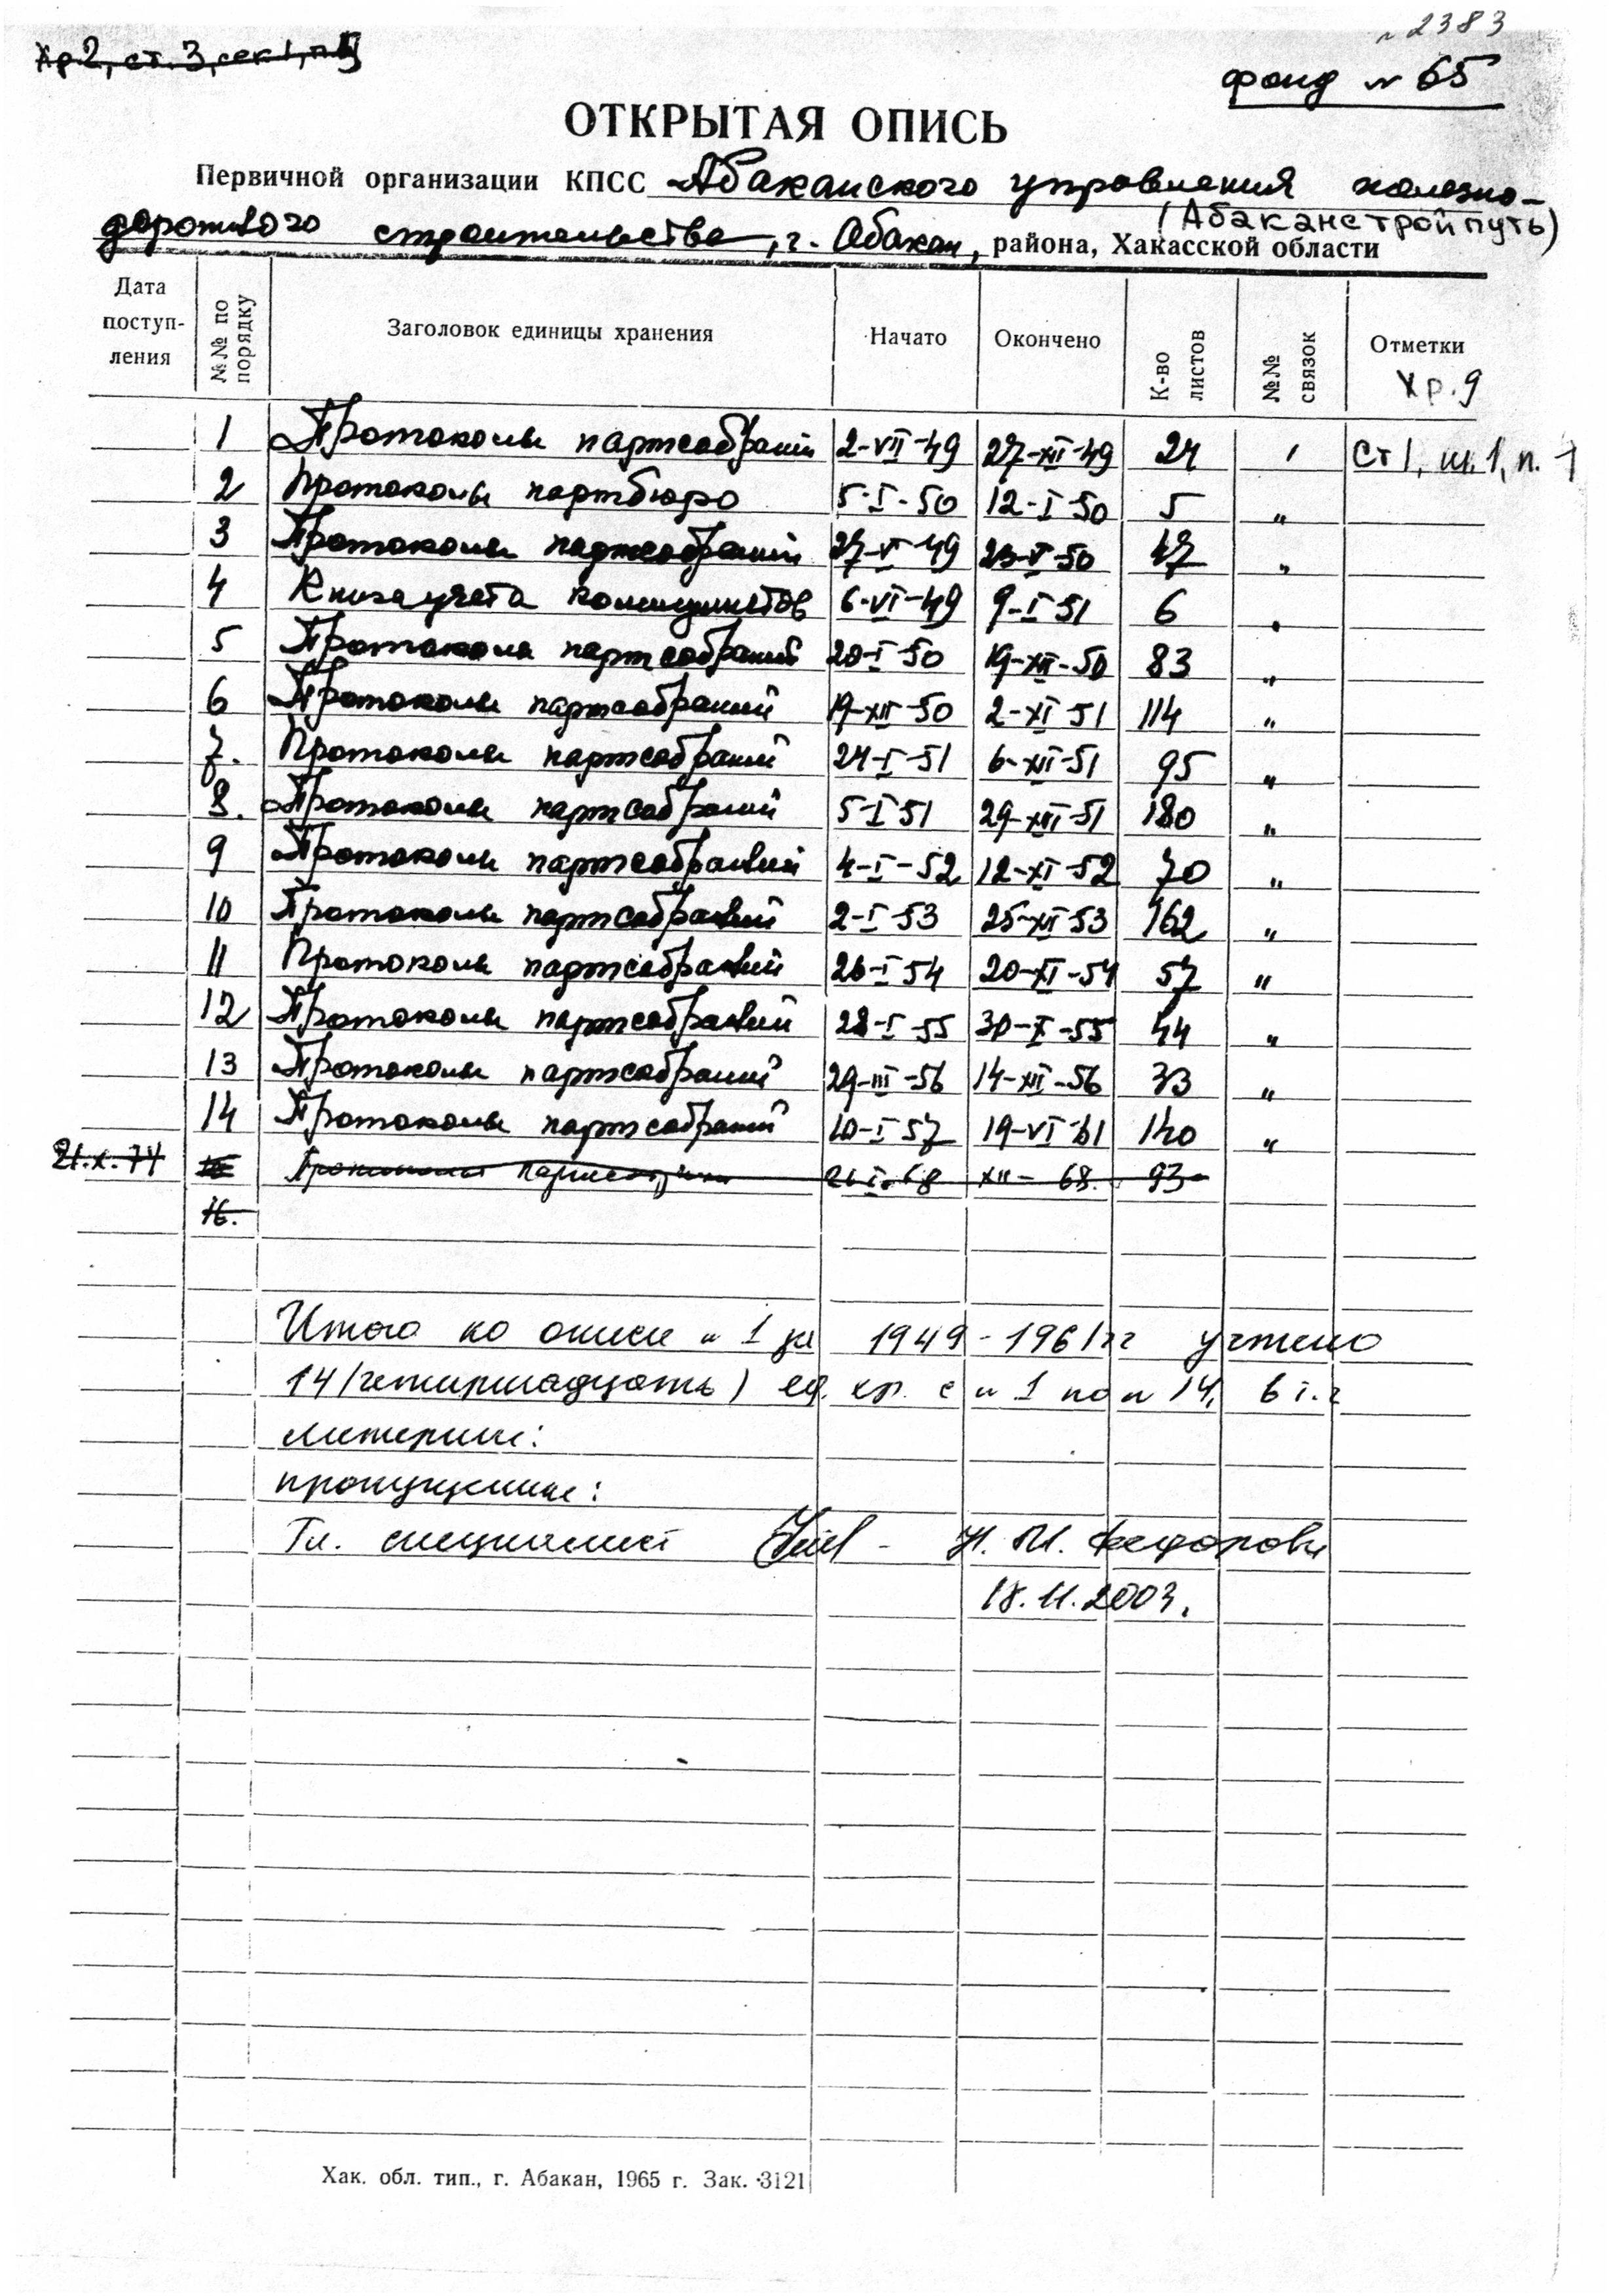 № 2383
Хр 2, ст. 3, сек 1, п. 5
фонд № 65
ОТКРЫТАЯ ОПИСЬ
Первичной организации КПСС Абаканского управления железно-
(Абаканстройпуть)
дорожного строительства, г. Абакан, района, Хакасской области
Дата поступ- ления №№ по порядку Заголовок единицы хранения Начато Окончено К-во листов №№ связок Отметки
Хр. 9
1 Протоколы партсобраний 2-VII-49 27-XII-49 24 1 Ст 1, ш. 1, п. 1
2 Протоколы партбюро 5-I-50 12-I-50 5 "
3 Протоколы партсобраний 27-V-49 23-V-50 47 "
4 Книга учета коммунистов 6-VI-49 9-I-51 6 "
5 Протоколы партсобраний 20-I-50 19-XII-50 83 "
6 Протоколы партсобраний 19-XII-50 2-XI-51 114 "
7. Протоколы партсобраний 24-I-51 6-XII-51 95 "
8. Протоколы партсобраний 5-I-51 29-XII-51 180 "
9 Протоколы партсобраний 4-I-52 12-XI-52 70 "
10 Протоколы партсобраний 2-I-53 25-XII-53 162 "
11 Протоколы партсобраний 26-I-54 20-XI-54 57 "
12 Протоколы партсобраний 28-I-55 30-X-55 44 "
13 Протоколы партсобраний 29-III-56 14-XII-56 33 "
14 Протоколы партсобраний 10-I-57 19-VI-61 140 "
21.X.74 15 Протоколы 26-I-68 XII-68. 93
16.
Итого по описи № 1 за 1949-1961 гг учтено
14 (четырнадцать) ед. хр. с № 1 по № 14, в т.ч
литерные:
пропущенные:
Гл. специалист Н. М. Федорова
18.11.2003.
Хак. обл. тип., г. Абакан, 1965 г. Зак. 3121